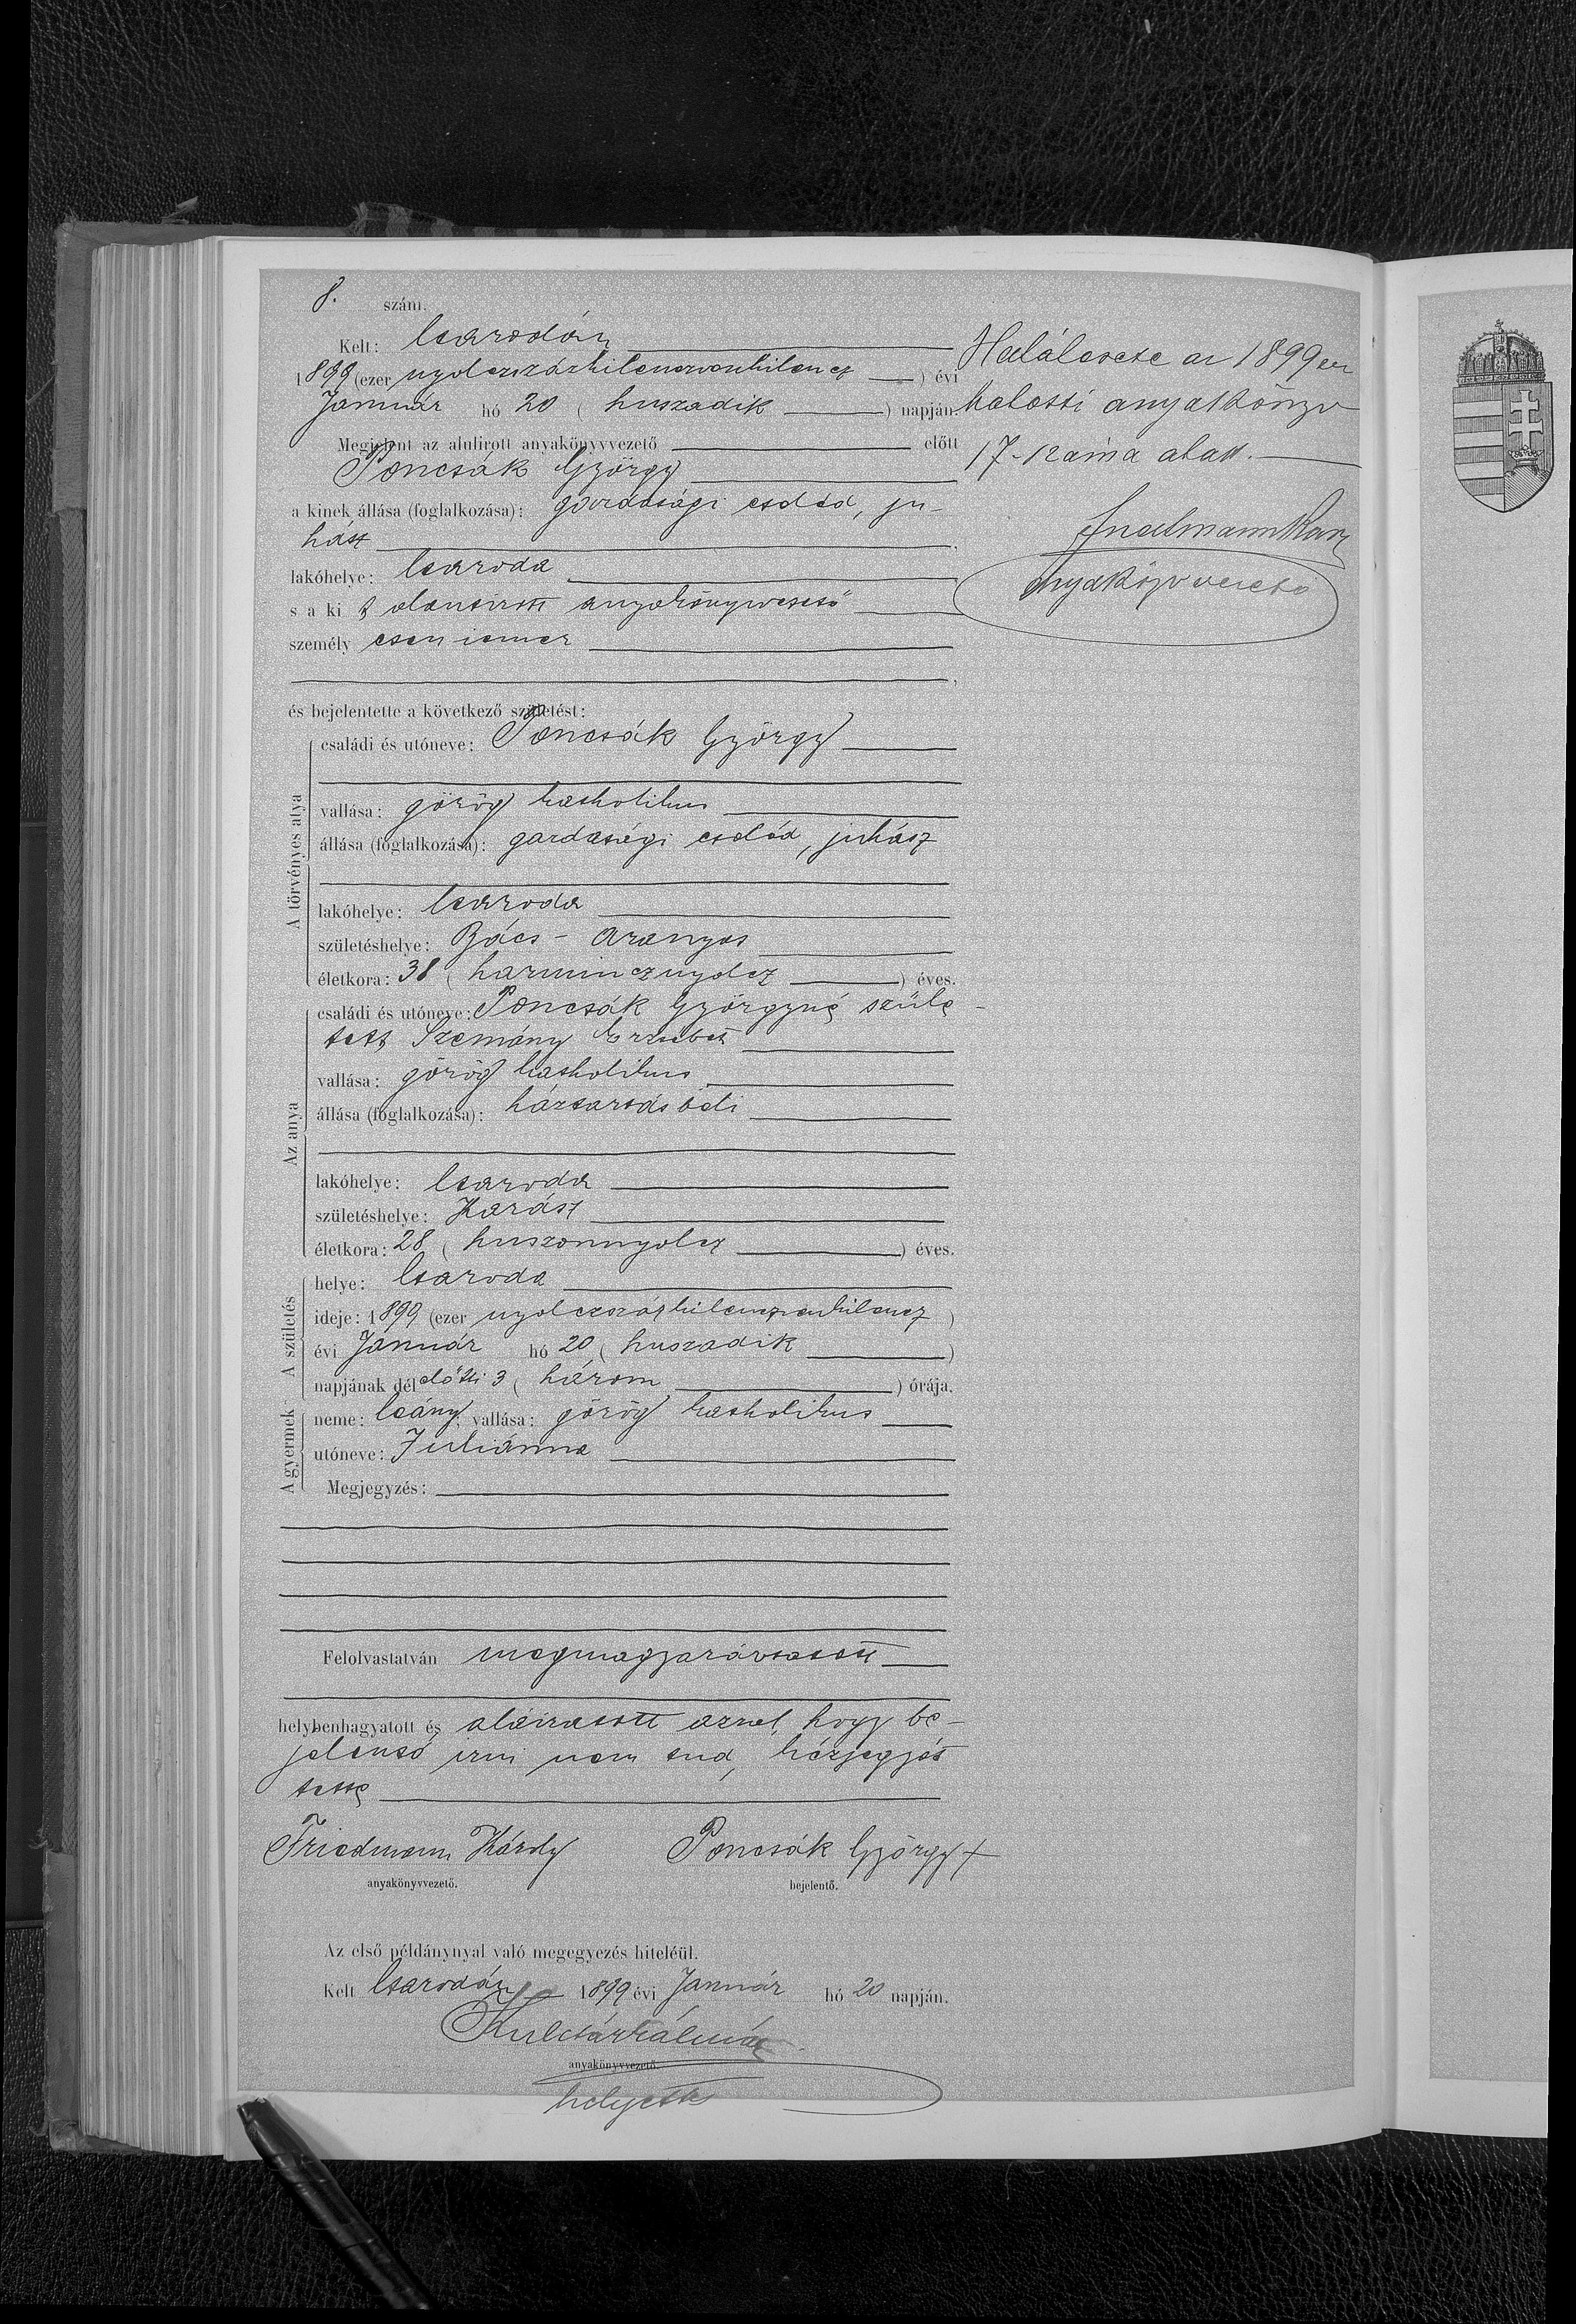 8. szám.
Kelt: Csarodán
1899 (ezer nyolczszázkilenczvenkilencz) évi
Január hó 20 (huszadik) napján.
Megjelent az alulirott anyakönyvvezető előtt
Poncsák György
a kinek állása (foglalkozása): gazdasági cseléd, ju-
hász
lakóhelye: Csaroda
s a ki t alantirott anyakönyvvezető
személyesen ismer
és bejelentette a következő születést:
A törvényes atya
családi és utóneve: Poncsák György
vallása: görög katholikus
állása (foglalkozása): gazdasági cseléd, juhász
lakóhelye: Csaroda
születéshelye: Bács-Aranyos
életkora: 38 (harmincznyolcz) éves.
Az anya
családi és utóneve: Poncsák Györgyné szüle-
tett Szemány Erzsébet
vallása: görög katholikus
állása (foglalkozása): háztartásbeli
lakóhelye: Csaroda
születéshelye: Karász
életkora: 28 (huszonnyolcz) éves.
A születés
helye: Csaroda
ideje: 1899 (ezer nyolczszázkilenczvenkilencz)
évi Január hó 20 (huszadik)
napjának délelőtti 3 (három) órája.
A gyermek
neme: leány, vallása: görög katholikus
utóneve: Juliánna
Megjegyzés:
Felolvastatván megmagyaráztatott
helybenhagyatott és aláiratott azzal, hogy be-
jelentő irni nem tud, kézjegyét
tette
Friedmann Károly Poncsák György +
anyakönyvvezető. bejelentő.
Az első példánynyal való megegyezés hiteléül.
Kelt Csarodán 1899 évi Január hó 20 napján.
Kulcsár Kálmán
anyakönyvvezető.
helyettes
Halálesete az 1899 évi
halotti anyakönyv
17. száma alatt.
anyakönyvvezető